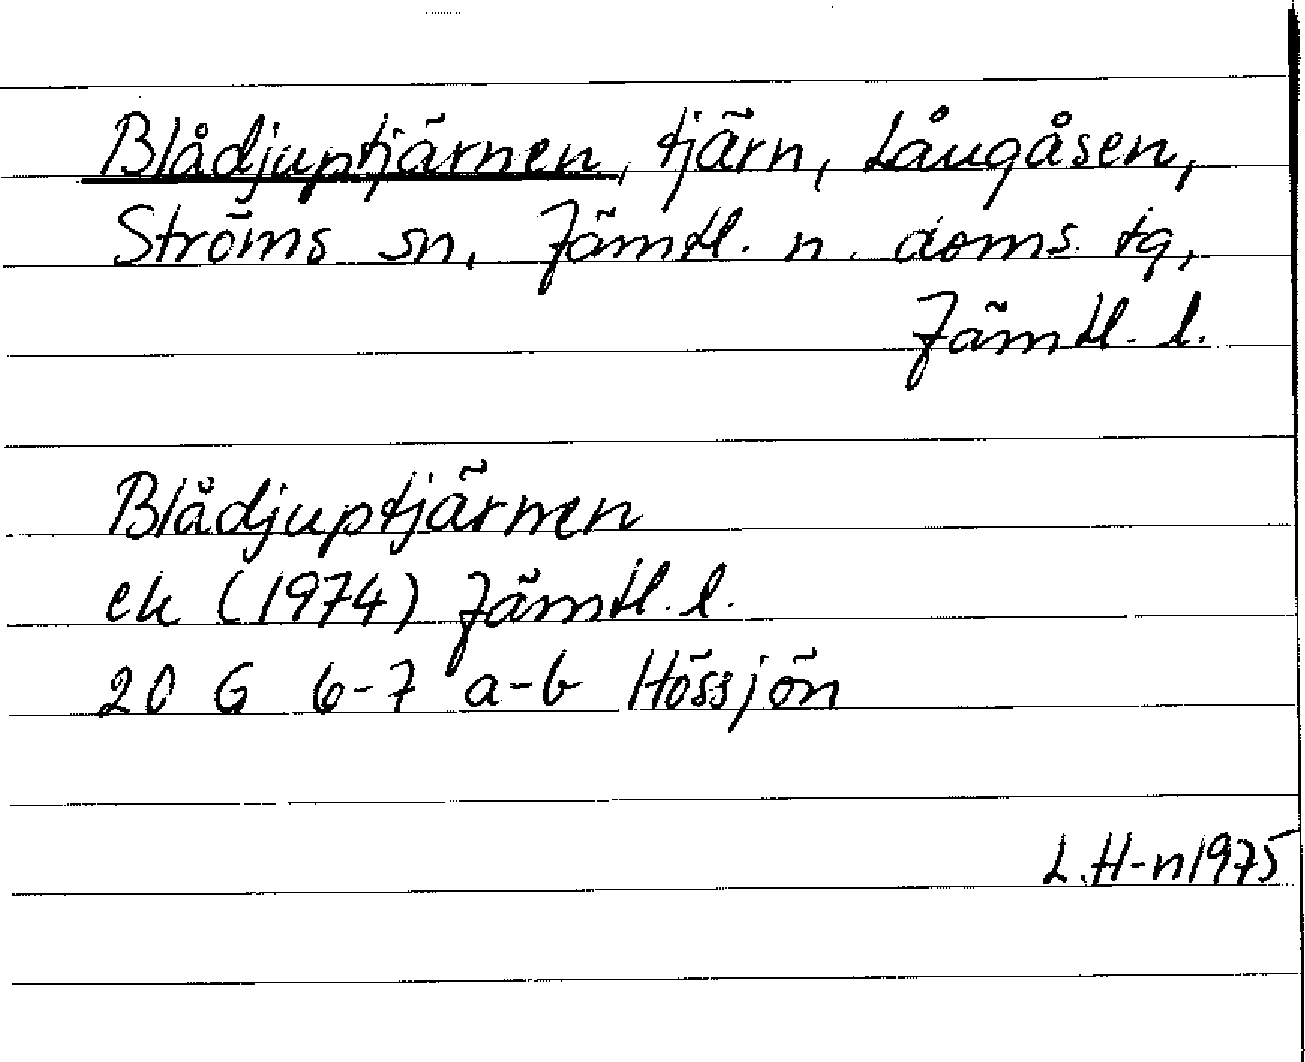 Blådjuptjärnen, tjärn, Långåsen,
Ströms sn, Jämtl. n. doms. tg,
Jämtl. l.
Blådjuptjärnen
ek (1974) Jämtl. l.
20 G 6-7 a-b Hössjön
L.H-n 1975